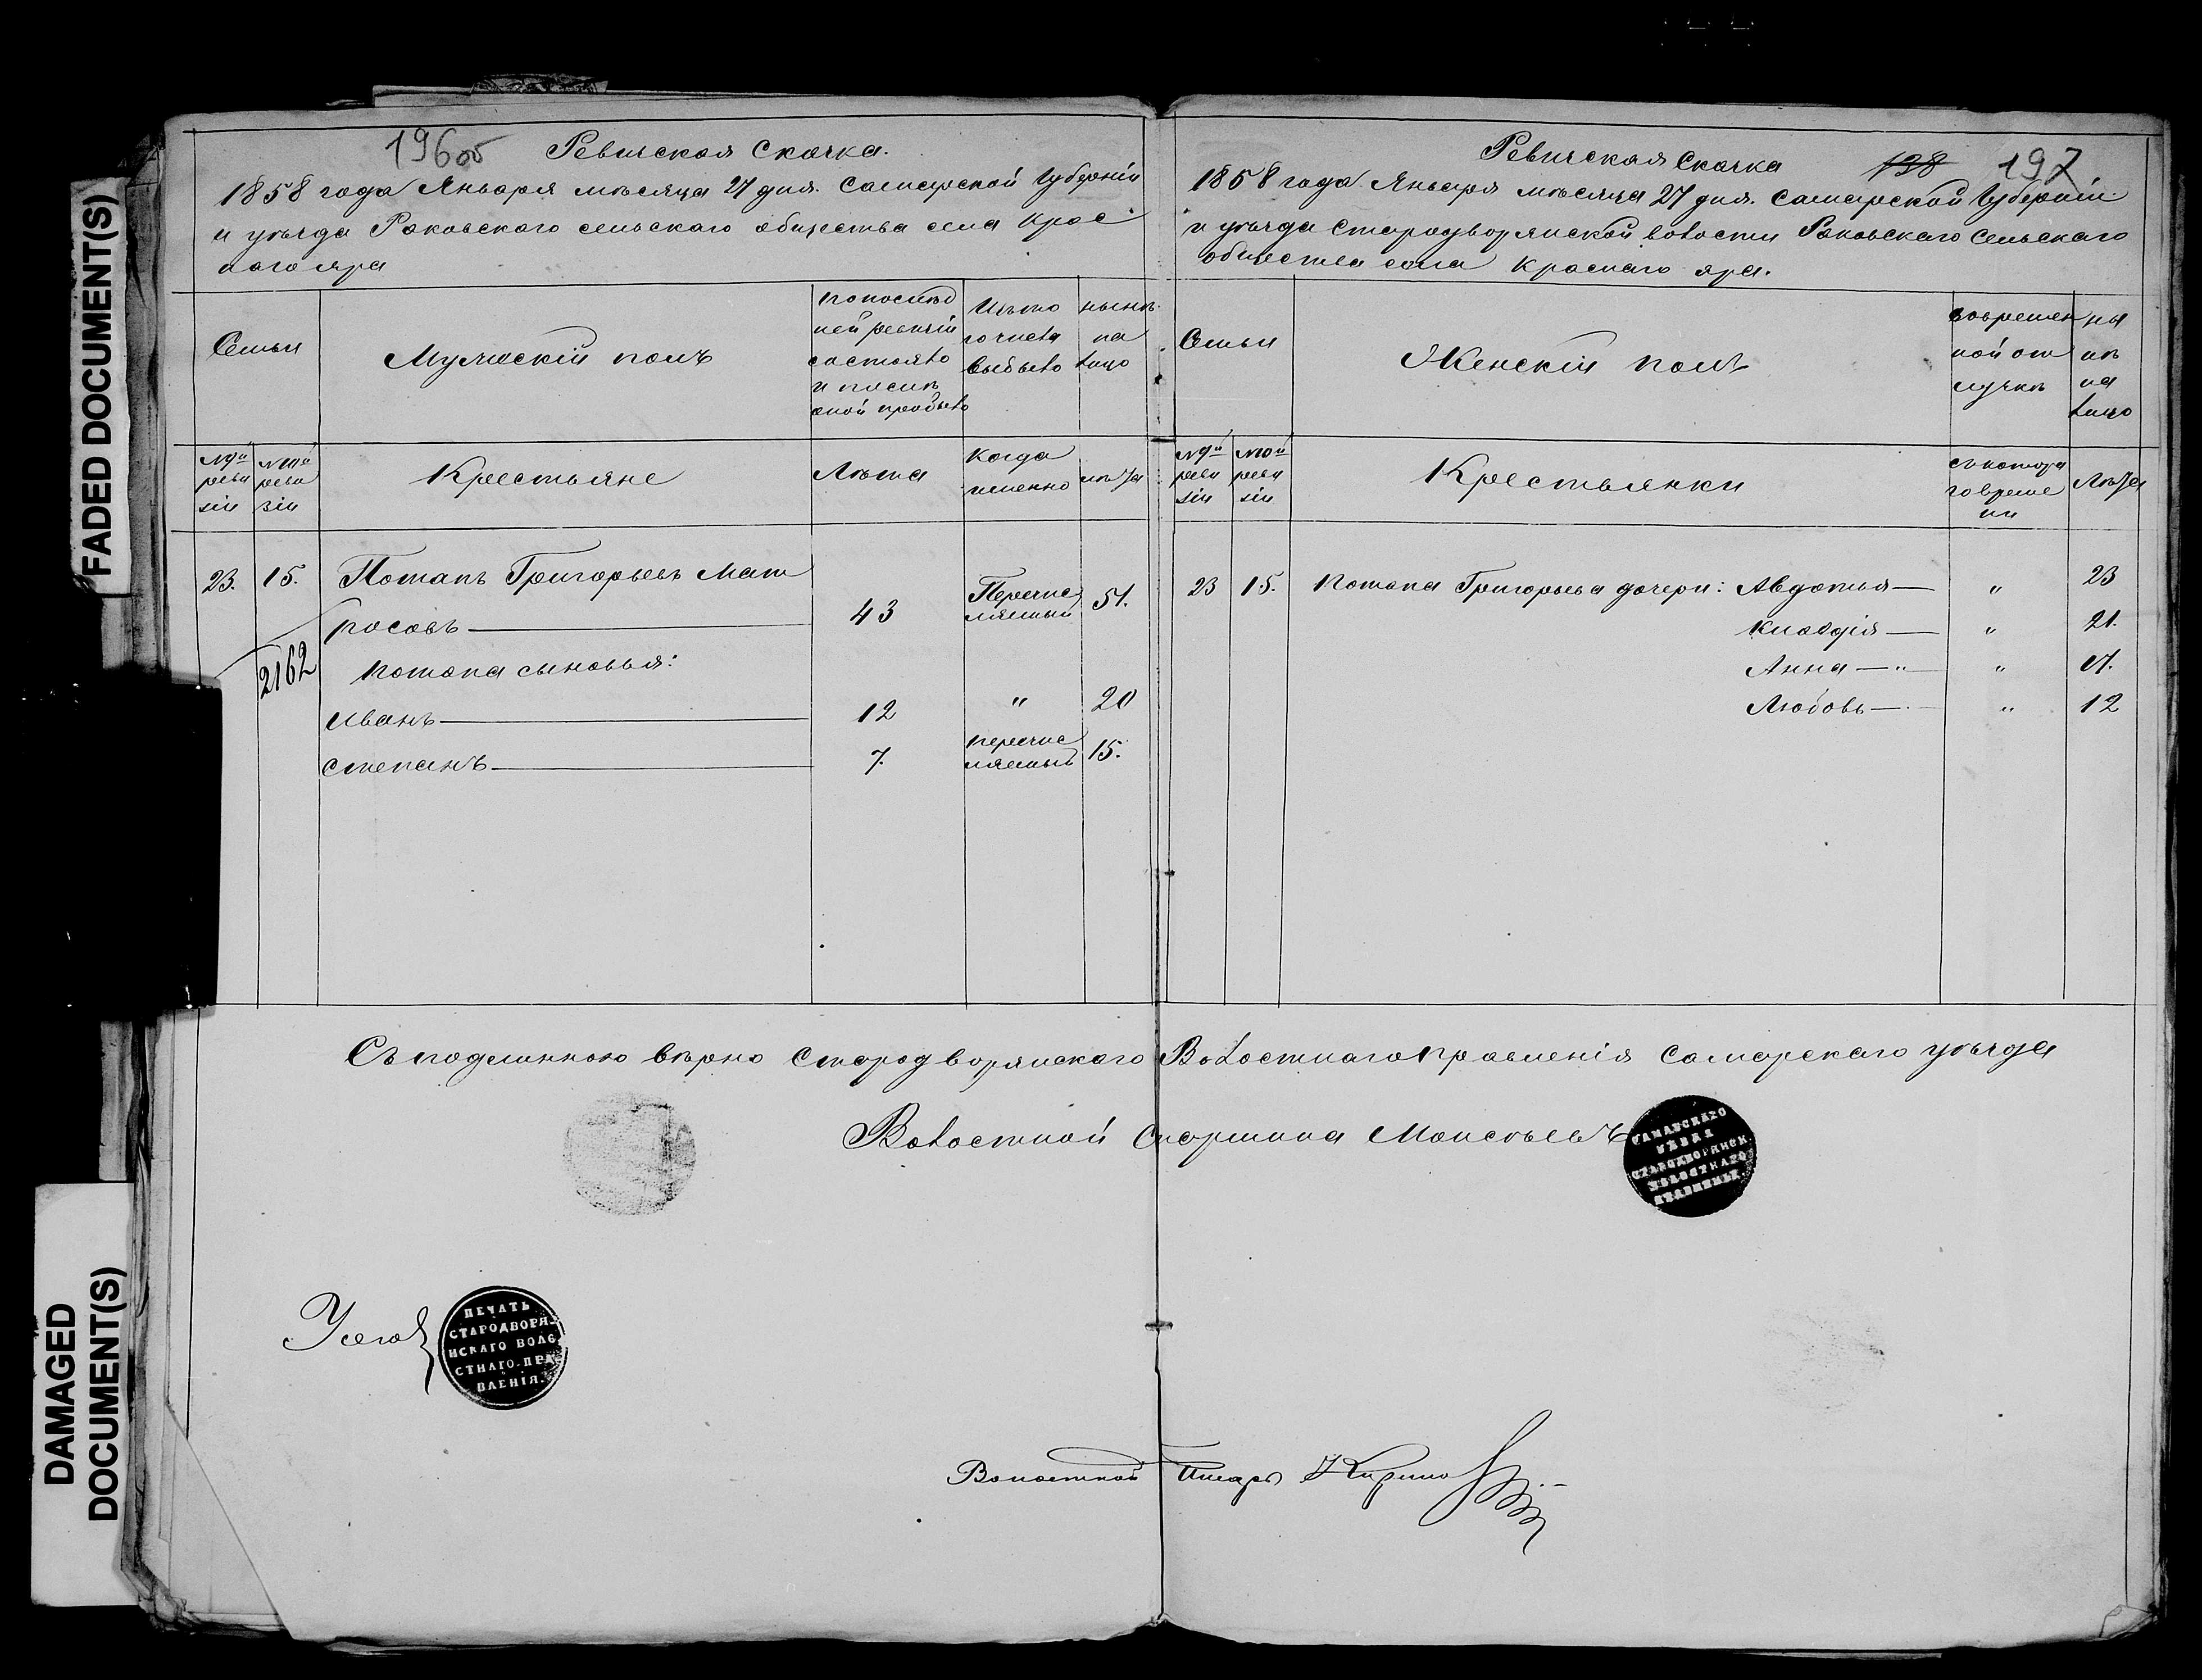 FADED DOCUMENT(S)
DAMAGED
DOCUMENT(S)
196об
Ревизская Сказка.
1858 года Января мѣсяца 27 дня. Самарской Губерніи
и уѣзда Раковского сельскаго общества села Крас
наго яра
Семьи
Мужескій полъ
по послѣд
ней ревизіи
состояло
и послѣ
оной прибыло
Изъ то
го числа
выбыло
нынѣ
на
лицо
№ 9й
реви
зіи
№ 10й
реви
зіи
Крестьяне
Лѣта
Когда
именно
лѣта
23. 15. Потапъ Григорьевъ Мат
росовъ 43 Перечис
ляемый 51.
2162
Потапа сыновья:
Иванъ 12 " 20
Степанъ 7. перечис
ляемый 15.
Ревизская Сказка
138 197
1858 года Января мѣсяца 27 дня. Самарской Губерніи
и уѣзда Стародворянской волости Раковскаго Сельскаго
общества села Краснаго яра.
Семьи
Женскій полъ
во времен
ной от
лучкѣ
ны
нѣ
на
лицо
№ 9й
реви
зіи
№ 10й
реви
зіи
Крестьянки
съ котора
го време
ни
Лѣта
23 15. Потапа Григорьева дочери: Авдотья " 23
Клавдія " 21.
Анна " 17.
Любовь " 12
Съ подлинною вѣрно Стародворянскаго Волостнаго правленія Самарскаго уѣзда
Волостной Старшина Моисеевъ
САМАРСКАГО
УѢЗДА
СТАРОДВОРЯНСК.
ВОЛОСТНАГО
ПЕЧАТЬ
СТАРОДВОРЯ-
НСКАГО ВОЛО
СТНАГО ПРА
ВЛЕНІЯ.
Волостной Писарь